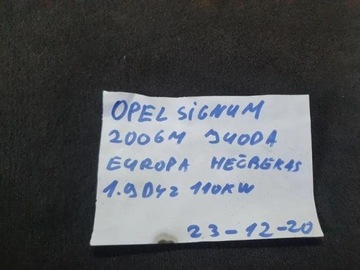 OPEL SIGNUM
2006M JUODA
EUROPA HEČBEKAS
1.9 DYZ 110KW
23-12-20